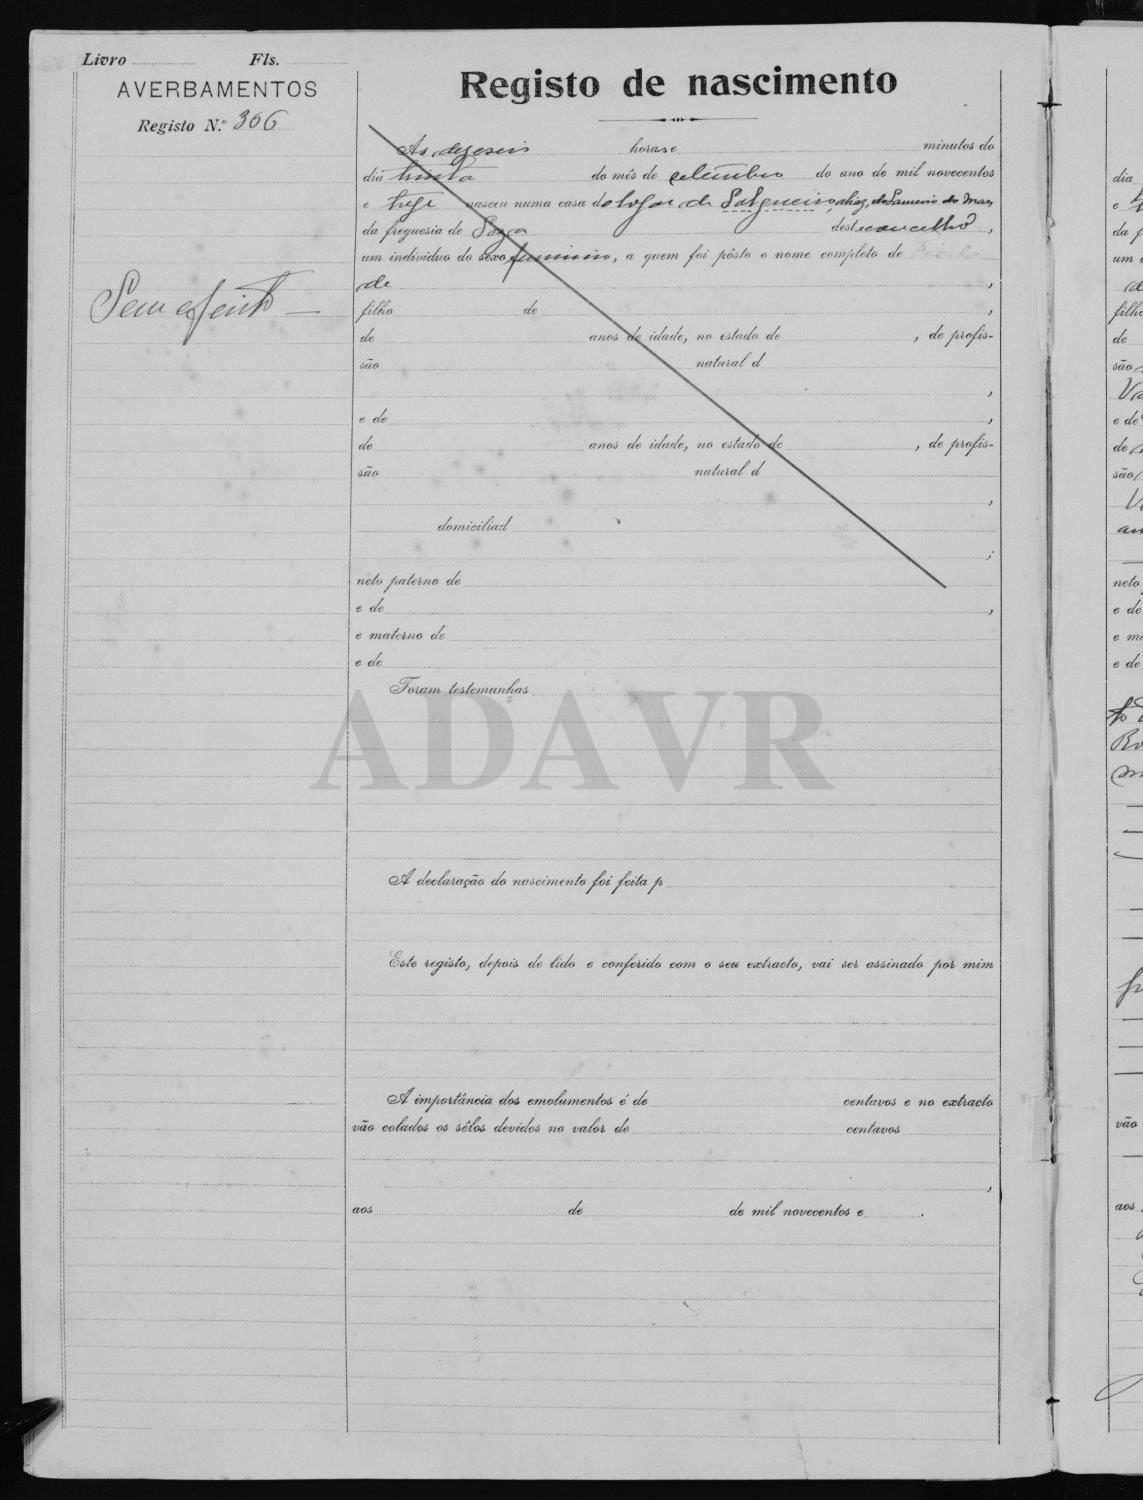 Livro Fls.
AVERBAMENTOS
Registo N.º 366
Sem efeito
Registo de nascimento
Às dezeseis horas e minutos do
dia trinta do mês de setembro do ano de mil novecentos
e treze nasceu numa casa do logar de Salgueiro, aliaz,
da freguesia de Soza deste concelho,
um indivíduo do sexo feminino, a quem foi pôsto o nome completo de
de ,
filho de ,
de anos de idade, no estado de , de profis-
são natural d
,
e de ,
de anos de idade, no estado de , de profis-
são natural d
,
domiciliad
;
neto paterno de
e de ,
e materno de
e de
Foram testemunhas
ADAVR
A declaração do nascimento foi feita p
Este registo, depois de lido e conferido com o seu extracto, vai ser assinado por mim
A importância dos emolumentos é de centavos e no extracto
vão colados os sêlos devidos no valor de centavos
,
aos de de mil novecentos e .
dia
e
da f
um
de
filho
de
são
e de
de
são
neto
e de
e ma
e de
vão
aos